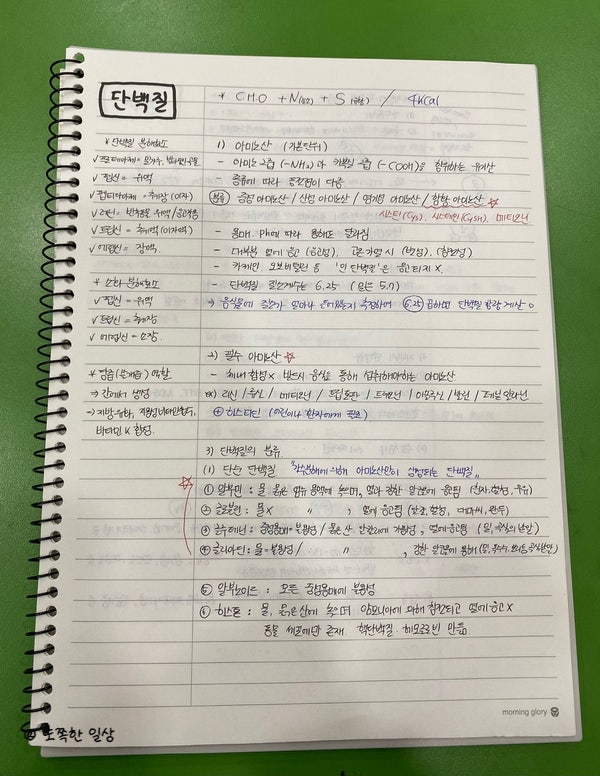 단백질
* 단백질 분해효소
✓ 펩신 = 위액
✓ 펩티다아제 = 췌장 (이자)
✓ 레닌 = 위액/응고작용
✓ 트립신 = 췌액 (이자액)
✓ 에렙신 = 장액
* 소화 분해효소
✓ 펩신 = 위액
✓ 트립신 = 췌장
✓ 에렙신 = 소장
* 담즙(쓸개즙) 역할
→ 간에서 생성
→ 지방 유화, 지용성비타민흡수,
비타민 K 합성.
* C.H.O + N(질소) + S(유황) / 4kcal
1) 아미노산 (기본단위)
- 아미노그룹 (-NH₂)과 카복실그룹 (-COOH)을 함유하는 유기산
- 종류에 따라 등전점이 다름
분류 중성 아미노산 / 산성 아미노산 / 염기성 아미노산 / 함황 아미노산 ☆
시스틴(Cys), 시스테인(CySH), 메티오닌
- 용매, PH에 따라 용해도 달라짐
- 대부분 열에 응고 (응고성),
- 카제인 오보뮤코이드 등 '인 단백질'은 응고되지 X.
- 단백질 질소계수는 6.25
→ 음식물에 질소가 얼마나 들어있는지 측정하여 6.25 곱하면 단백질 함량 계산 ○
2) 필수 아미노산 ☆
- 체내합성X 반드시 음식을 통해 섭취해야하는 아미노산
ex) 리신 / 류신 / 메티오닌 / 트립토판 / 트레오닌 / 이소류신 / 발린 / 페닐알라닌
⊕ 히스티딘 (어린이나 환자에게 필요)
3) 단백질의 분류.
(1) 단순 단백질 "가수분해에 의해 아미노산만이 생성되는 단백질"
☆ ① 알부민 : 물, 묽은 염류 용액에 녹으며, 열과 강한 알코올에 응고됨
② 글로불린 : 물X / 〃 , 열에 응고됨
③ 글루테닌 : 중성용매=불용성 / 묽은 산. 알칼리에 가용성, 열에 응고됨
④ 글리아딘 : 물=불용성 / 〃 , 강한 알코올에 용해
⑤ 알부노이드 : 모든 중성용매에 불용성
⑥ 히스톤 : 물, 묽은산에 녹으며 암모니아에 의해 침전되고 열에 응고 X
동물 세포에만 존재. 핵단백질 헤모글로빈 만듦
morning glory
또쪽한 일상